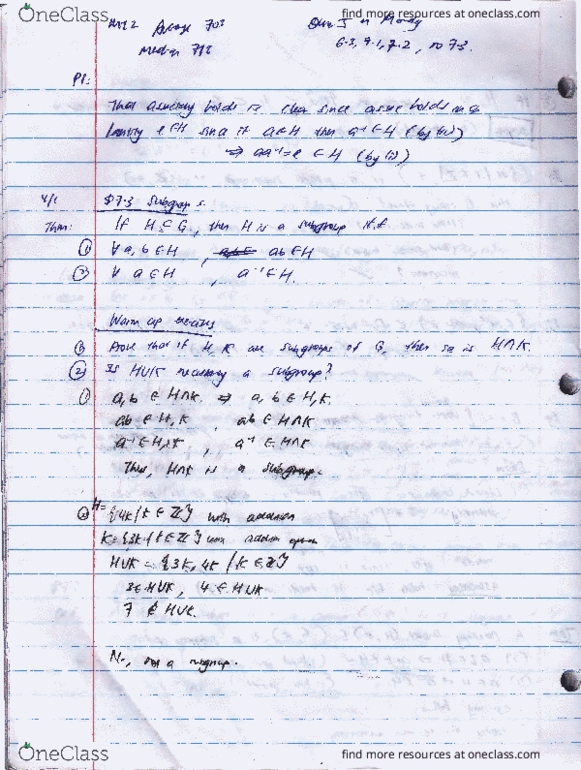 OneClass find more resources at oneclass.com
Average 703
Median 712
Quiz 5 on Monday
6.3, 7.1, 7.2, no 7.3.
Pf:
That associativity holds is clear since assoc holds in G
Identity e ∈ H since if a ∈ H then a⁻¹ ∈ H (by (2))
⇒ aa⁻¹ = e ∈ H (by (1))
4/1 §7.3 Subgroups.
Thm: If H ⊆ G, then H is a subgroup iff
① ∀ a, b ∈ H, ab ∈ H
② ∀ a ∈ H, a⁻¹ ∈ H.
Warm up exercises
① Prove that if H, K are subgroups of G, then so is H∩K.
② Is H∪K necessary a subgroup?
① a, b ∈ H∩K ⇒ a, b ∈ H, K.
ab ∈ H, K, ab ∈ H∩K
a⁻¹ ∈ H, K, a⁻¹ ∈ H∩K
Thus, H∩K is a subgroup.
② H = {4k | k ∈ ℤ} with addition
K = {3k | k ∈ ℤ} with addition
H∪K = {3k, 4k | k ∈ ℤ}
3 ∈ H∪K, 4 ∈ H∪K
7 ∉ H∪K.
No, not a subgroup.
OneClass find more resources at oneclass.com